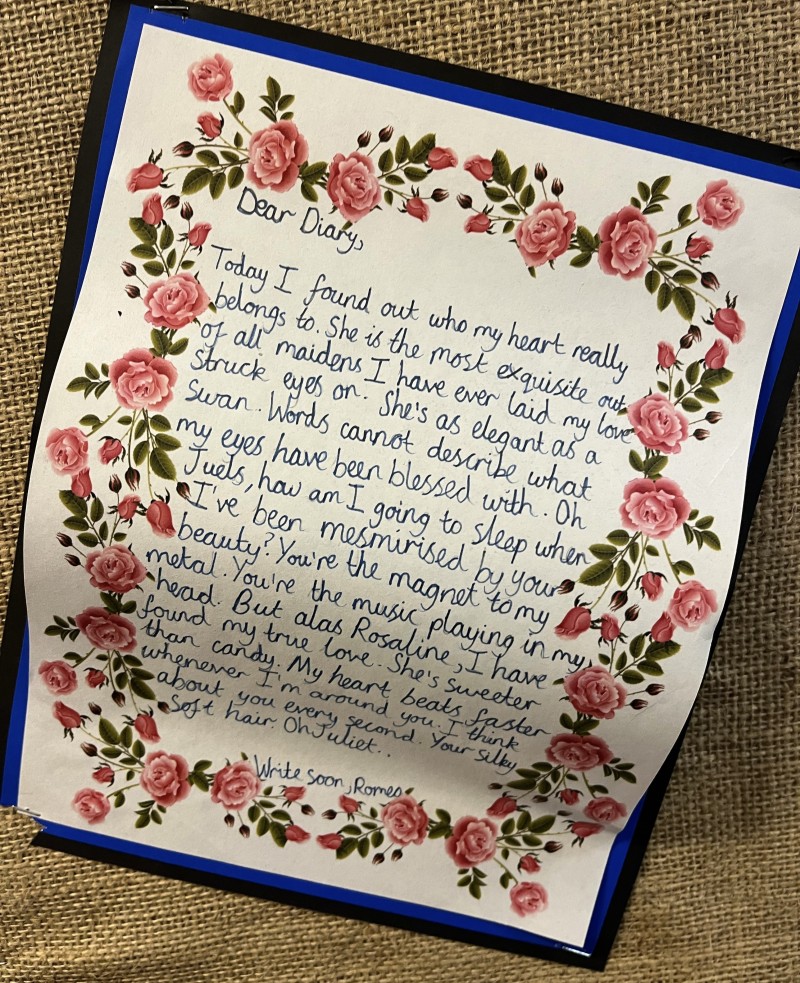 Dear Diary,
Today I found out who my heart really
belongs to. She is the most exquisite out
of all maidens I have ever laid my love
struck eyes on. She's as elegant as a
Swan. Words cannot describe what
my eyes have been blessed with. Oh
Juels, how am I going to sleep when
I've been mesmirised by your
beauty? You're the magnet to my
metal. You're the music playing in my
head. But alas Rosaline, I have
found my true love. She's sweeter
than candy. My heart beats faster
whenever I'm around you. I think
about you every second. Your silky
soft hair. Oh Juliet..
Write soon, Romeo